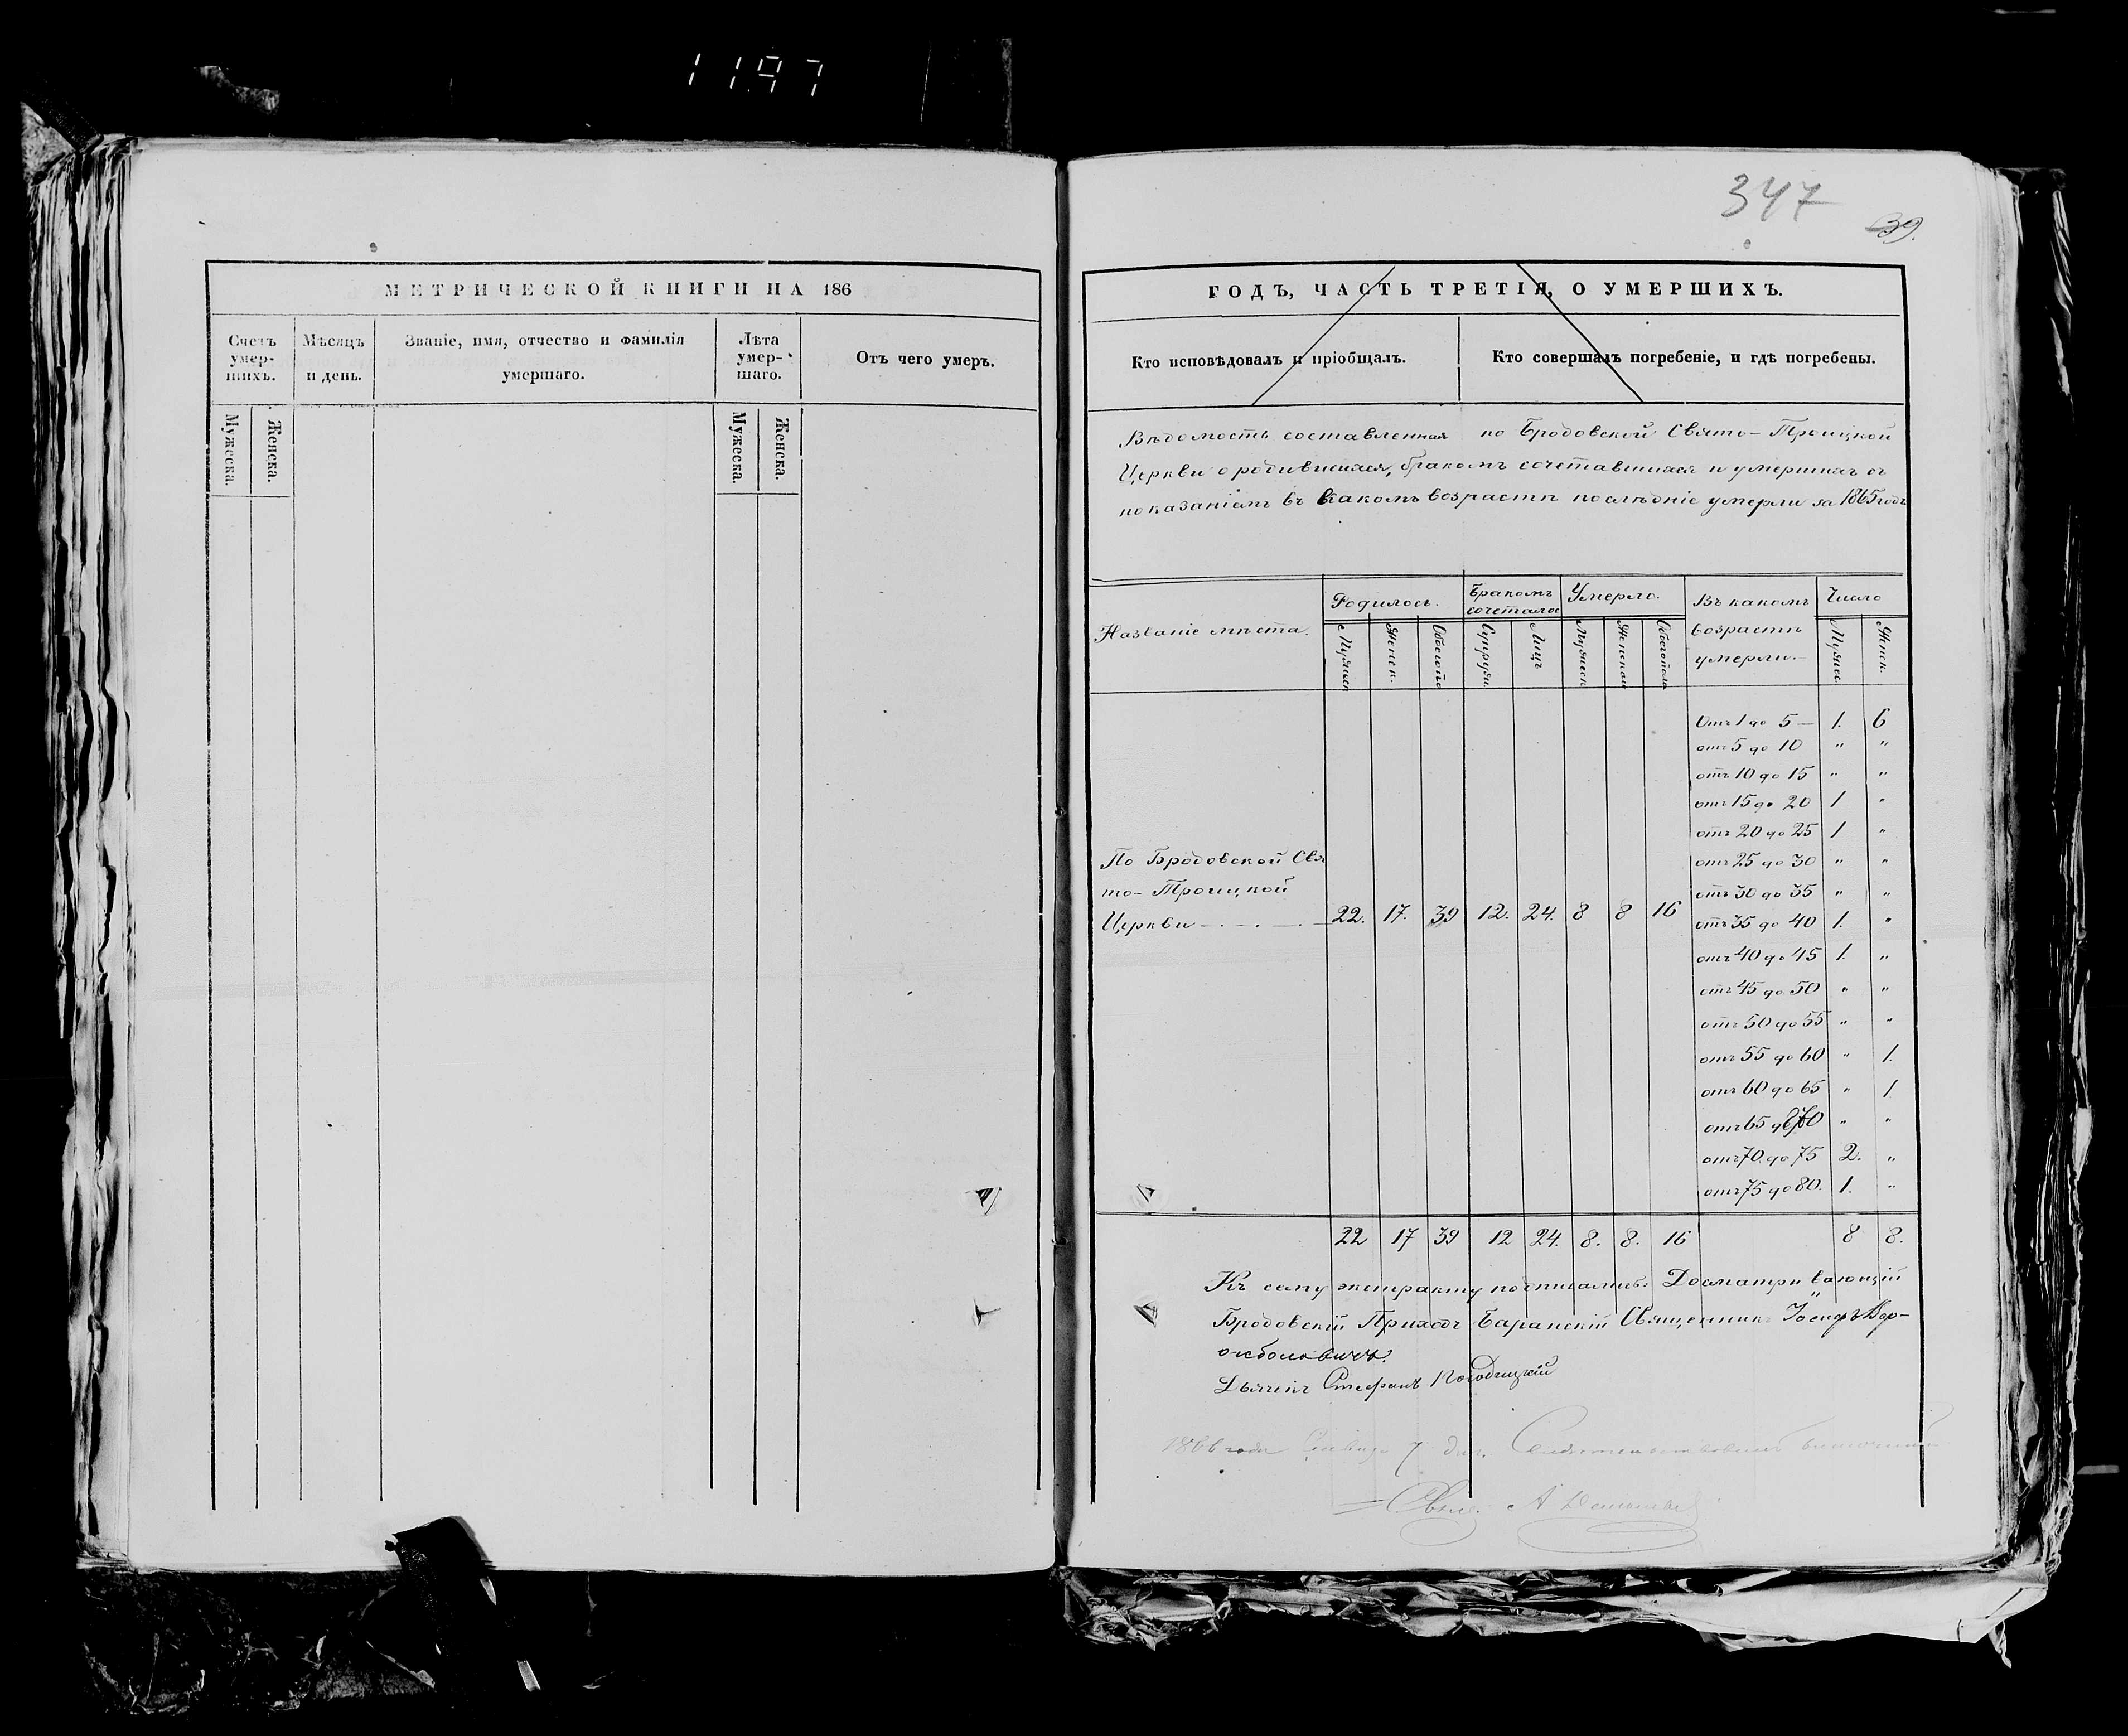 1197
МЕТРИЧЕСКОЙ КНИГИ НА 186
Счетъ умерщихъ.
Мѣсяцъ и день.
Званіе, имя, отчество и фамилія умершаго.
Лѣта умер-шаго.
Отъ чего умеръ.
Мужеска. Женска.
Мужеска. Женска.
347
39.
ГОДЪ, ЧАСТЬ ТРЕТІЯ, О УМЕРШИХЪ.
Кто исповѣдовалъ и пріобщалъ.
Кто совершалъ погребеніе, и гдѣ погребены.
Вѣдомость составленная по Бродовской Свято-Троицкой
Церкви о родившихся, бракомъ сочетавшихся и умершихъ съ
показаніемъ въ какомъ возрастѣ послѣдніе умерли за 1865 годъ
Названіе мѣста.
Родилось.
Бракомъ сочеталось
Умерло.
Въ какомъ возрастѣ умерли.
Число
Мужеск Женск. Обоего по Супруж. Лицъ Мужеск Женскаго Обоего пола Мужес. Женск.
Отъ 1 до 5 — 1. 6
отъ 5 до 10 " "
отъ 10 до 15 " "
отъ 15 до 20 1 "
отъ 20 до 25 1 "
По Бродовской Свя
отъ 25 до 30 " "
то-Троицкой
отъ 30 до 35 " "
Церкви 22. 17. 39 12. 24. 8 8 16
отъ 35 до 40 1. "
отъ 40 до 45 1. "
отъ 45 до 50 " "
отъ 50 до 55 " "
отъ 55 до 60 " 1.
отъ 60 до 65 " 1.
отъ 65 до 70 " "
отъ 70 до 75 2. "
отъ 75 до 80. 1. "
22 17 39 12 24. 8. 8. 16 8 8.
Къ сему экстракту подписались: Досматривающій
Бродовскій Приходъ Баранскій Священникъ Іосифъ
Дьячекъ Стефанъ
1866 года 7 дня.